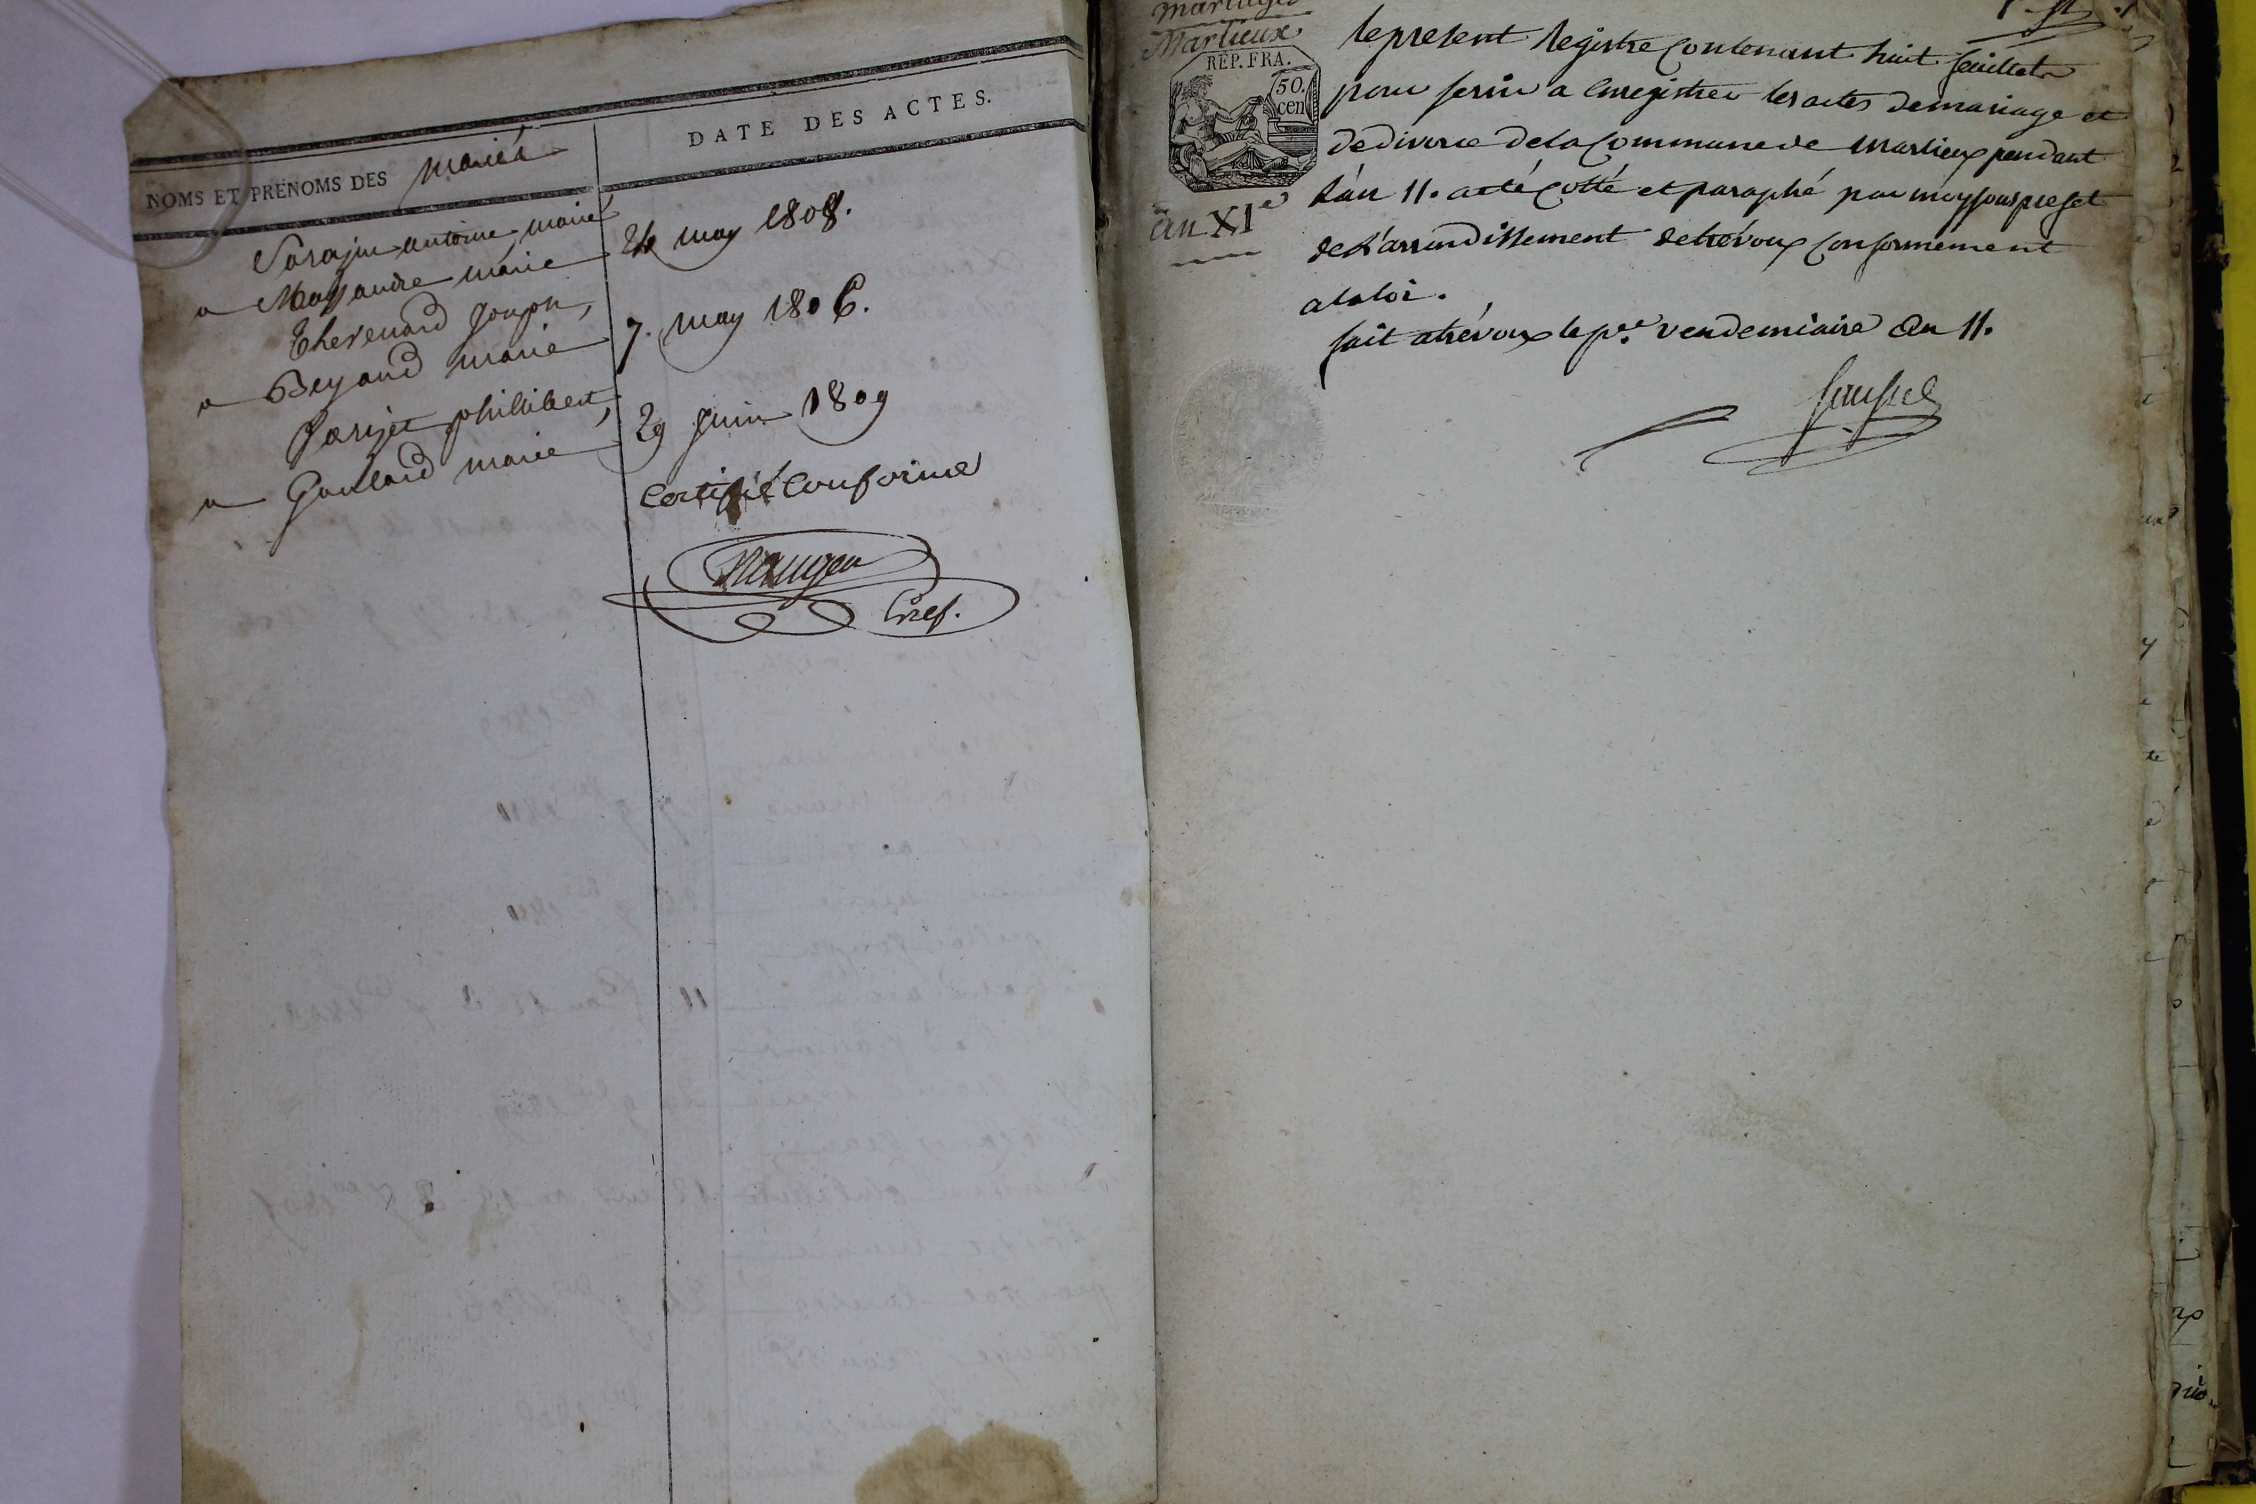 NOMS ET PRENOMS DES mariés
DATE DES ACTES.
antoine, marié
a marie
24 may 1808.
Thevenard joseph,
a Beyaud marie
7. may 1806.
Parijet phillibert,
a Goullard marie
29 juin 1809
Certifié Conforme
Greff.
mariages
Marlieux
REP. FRA.
50.
cen
an XIe
le present Registre Contenant huit feuillets
pour servir a Enregistrer les actes de mariage et
de divorce de la Commune de Marlieux pendant
l'an 11. a été Cotté et paraphé par moy sous prefet
de l'arrondissement de trévoux Conformement
a la loi.
fait a trévoux le pr. vendemiaire an 11.